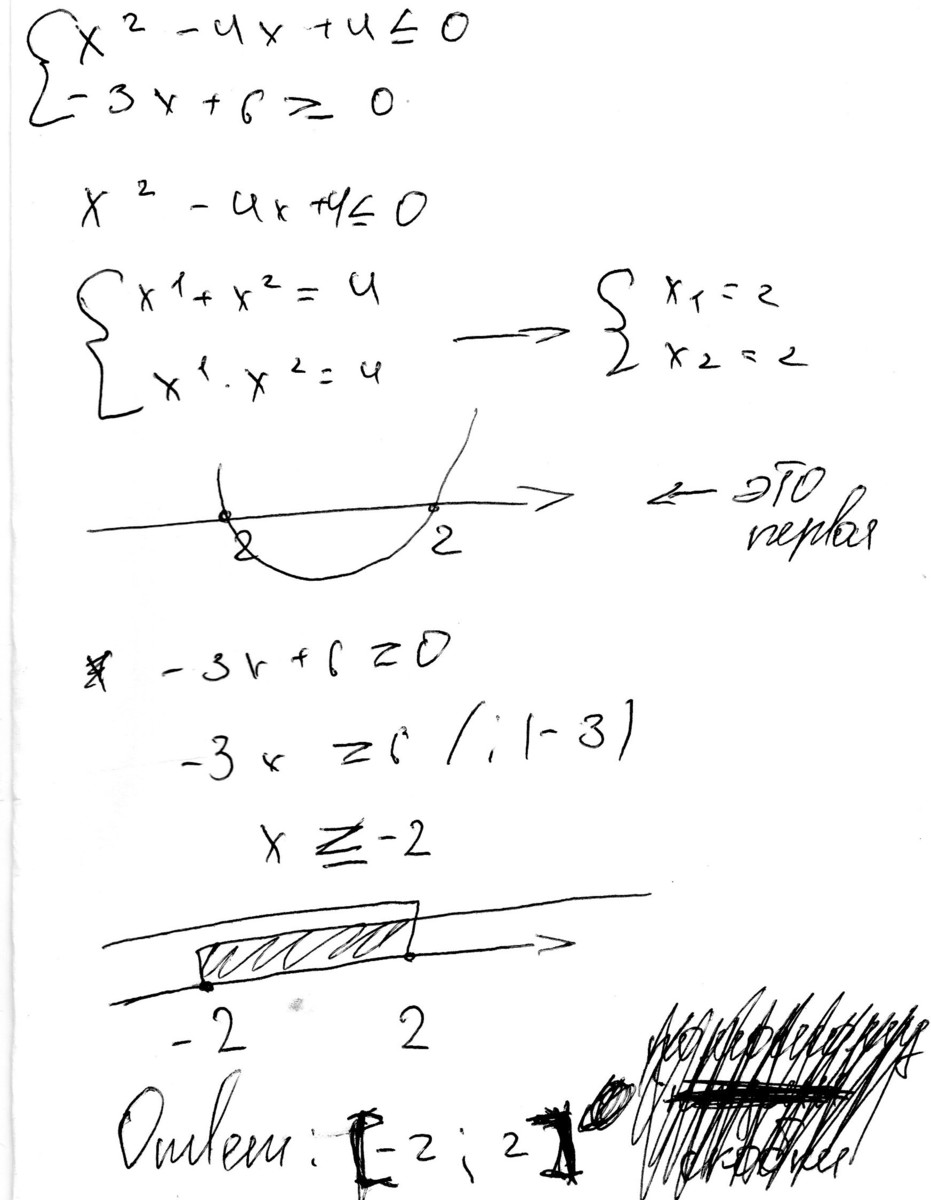 { x² - 4x + 4 ≤ 0
- 3x + 6 ≥ 0
x² - 4x + 4 ≤ 0
{ x¹ + x² = 4 → { x₁ = 2
x¹ · x² = 4 x₂ = 2
2 2 ← это
первая
-3x + 6 ≥ 0
-3x ≥ 6 / : (-3)
x ≥ -2
-2 2
Ответ: [-2 ; 2]